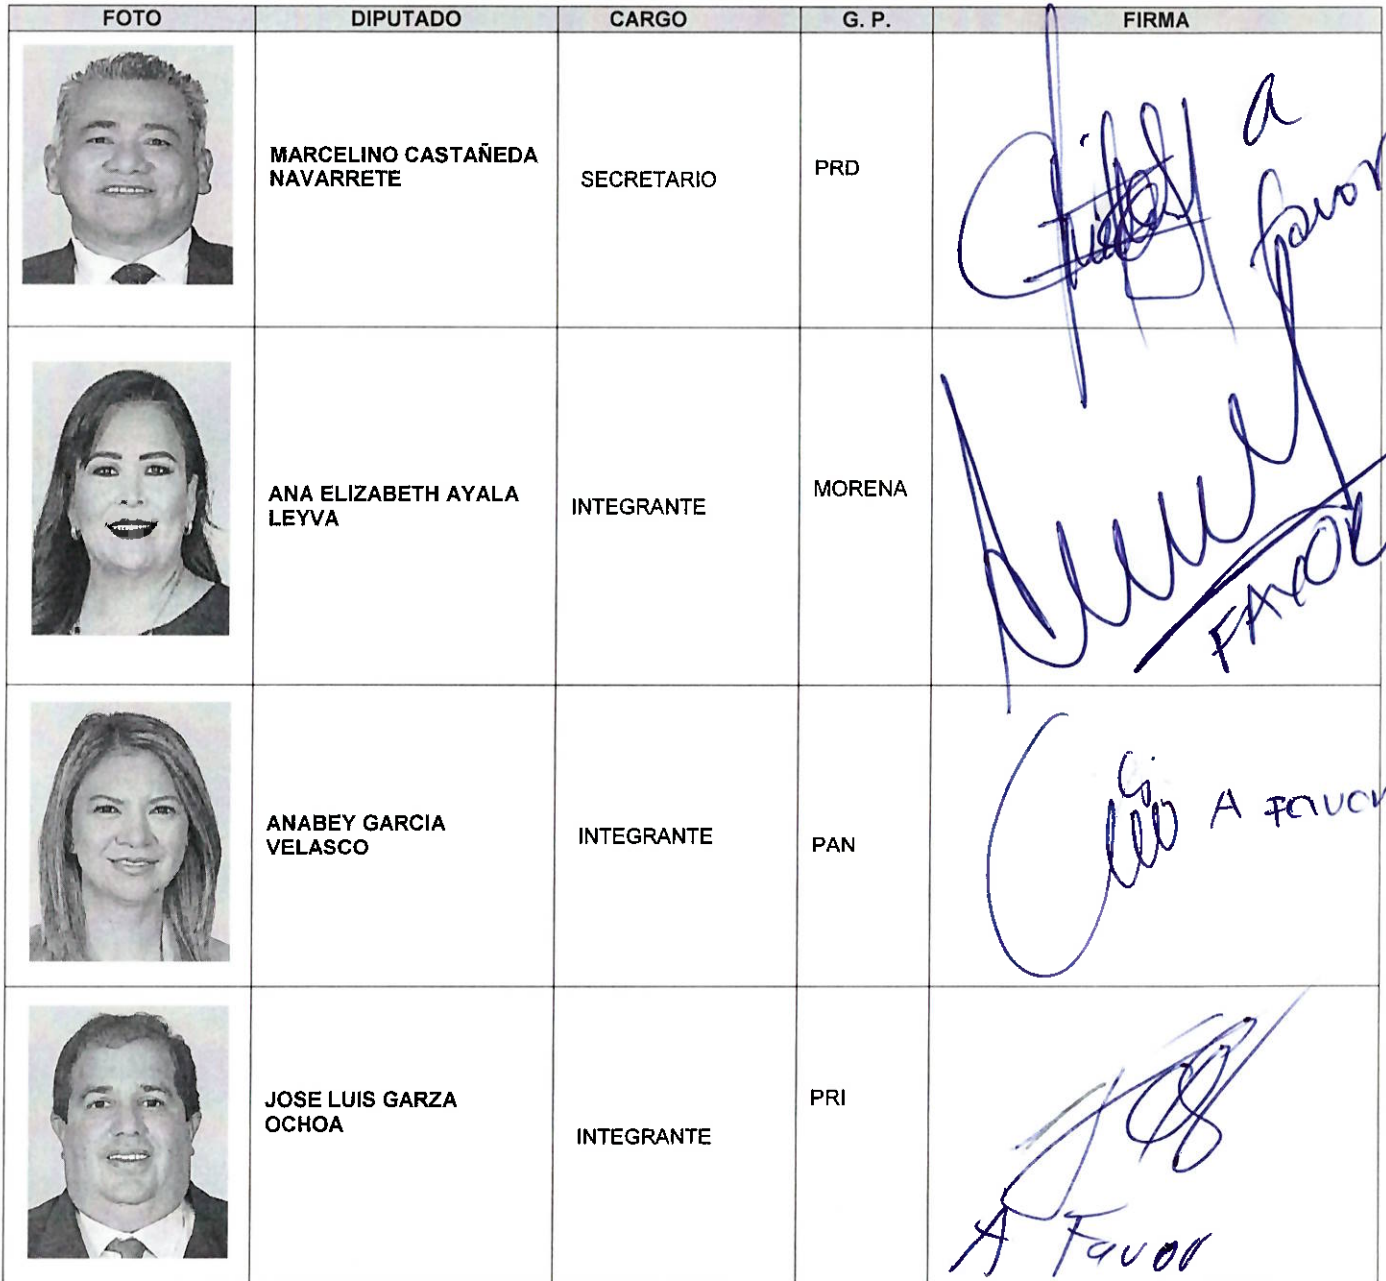 FOTO DIPUTADO CARGO G. P. FIRMA
MARCELINO CASTAÑEDA
NAVARRETE
SECRETARIO
PRD
a
favor
ANA ELIZABETH AYALA
LEYVA
INTEGRANTE
MORENA
FAVOR
ANABEY GARCIA
VELASCO
INTEGRANTE
PAN
A Favor
JOSE LUIS GARZA
OCHOA
INTEGRANTE
PRI
A Favor